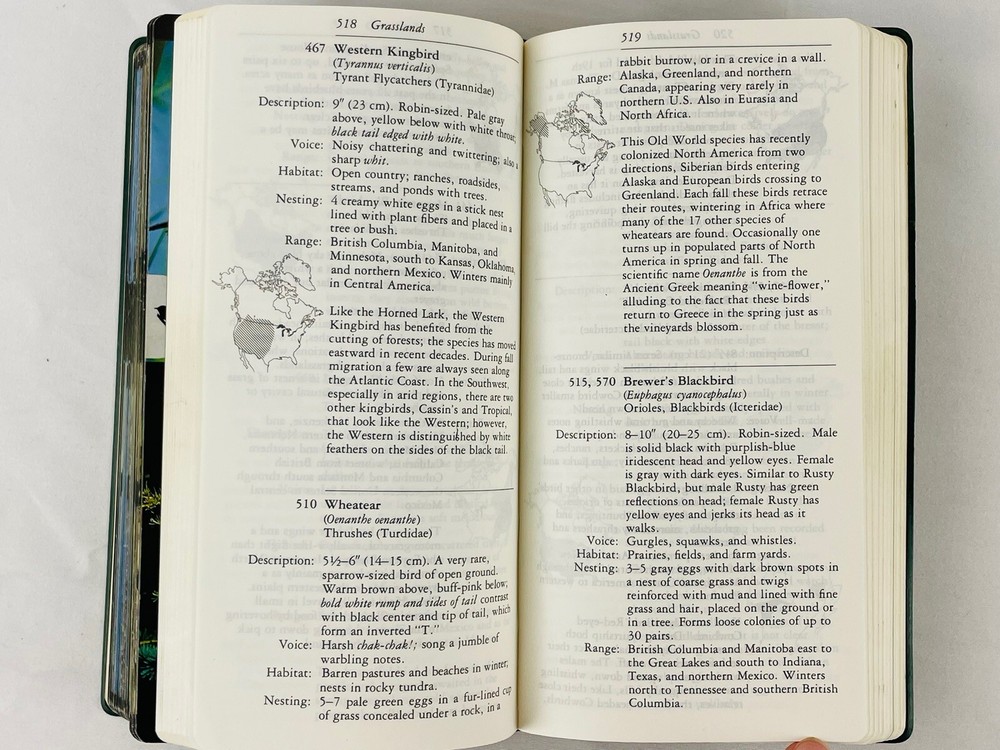 518 Grasslands
467 Western Kingbird
(Tyrannus verticalis)
Tyrant Flycatchers (Tyrannidae)
Description: 9″ (23 cm). Robin-sized. Pale gray
above, yellow below with white throat;
black tail edged with white.
Voice: Noisy chattering and twittering; also a
sharp whit.
Habitat: Open country; ranches, roadsides,
streams, and ponds with trees.
Nesting: 4 creamy white eggs in a stick nest
lined with plant fibers and placed in a
tree or bush.
Range: British Columbia, Manitoba, and
Minnesota, south to Kansas, Oklahoma,
and northern Mexico. Winters mainly
in Central America.
Like the Horned Lark, the Western
Kingbird has benefited from the
cutting of forests; the species has moved
eastward in recent decades. During fall
migration a few are always seen along
the Atlantic Coast. In the Southwest,
especially in arid regions, there are two
other kingbirds, Cassin's and Tropical,
that look like the Western; however,
the Western is distinguished by white
feathers on the sides of the black tail.
510 Wheatear
(Oenanthe oenanthe)
Thrushes (Turdidae)
Description: 5½–6″ (14–15 cm). A very rare,
sparrow-sized bird of open ground.
Warm brown above, buff-pink below;
bold white rump and sides of tail contrast
with black center and tip of tail, which
form an inverted "T."
Voice: Harsh chak-chak!; song a jumble of
warbling notes.
Habitat: Barren pastures and beaches in winter;
nests in rocky tundra.
Nesting: 5–7 pale green eggs in a fur-lined cup
of grass concealed under a rock, in a
519
rabbit burrow, or in a crevice in a wall.
Range: Alaska, Greenland, and northern
Canada, appearing very rarely in
northern U.S. Also in Eurasia and
North Africa.
This Old World species has recently
colonized North America from two
directions, Siberian birds entering
Alaska and European birds crossing to
Greenland. Each fall these birds retrace
their routes, wintering in Africa where
many of the 17 other species of
wheatears are found. Occasionally one
turns up in populated parts of North
America in spring and fall. The
scientific name Oenanthe is from the
Ancient Greek meaning "wine-flower,"
alluding to the fact that these birds
return to Greece in the spring just as
the vineyards blossom.
515, 570 Brewer's Blackbird
(Euphagus cyanocephalus)
Orioles, Blackbirds (Icteridae)
Description: 8–10″ (20–25 cm). Robin-sized. Male
is solid black with purplish-blue
iridescent head and yellow eyes. Female
is gray with dark eyes. Similar to Rusty
Blackbird, but male Rusty has green
reflections on head; female Rusty has
yellow eyes and jerks its head as it
walks.
Voice: Gurgles, squawks, and whistles.
Habitat: Prairies, fields, and farm yards.
Nesting: 3–5 gray eggs with dark brown spots in
a nest of coarse grass and twigs
reinforced with mud and lined with fine
grass and hair, placed on the ground or
in a tree. Forms loose colonies of up to
30 pairs.
Range: British Columbia and Manitoba east to
the Great Lakes and south to Indiana,
Texas, and northern Mexico. Winters
north to Tennessee and southern British
Columbia.